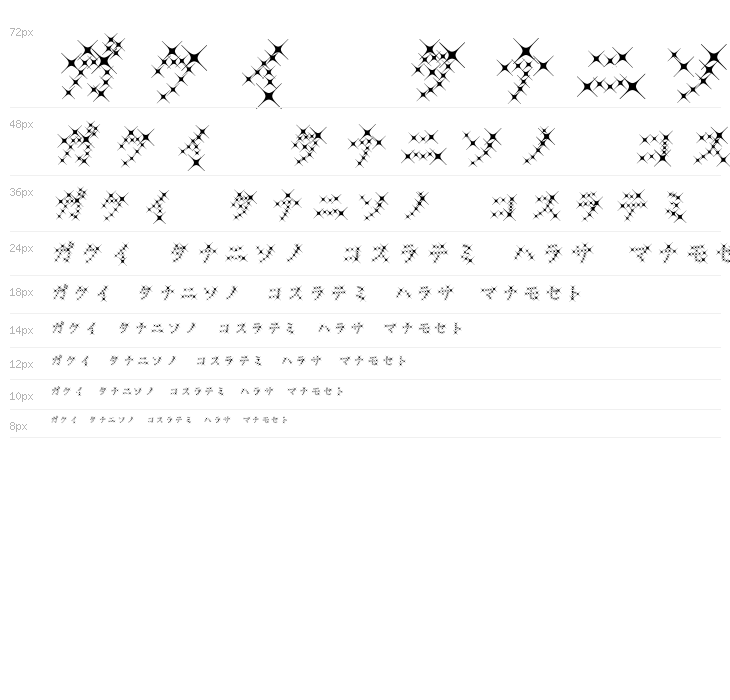 72px ガクイ タナニソ
48px ガクイ タナニソノ コス
36px ガクイ タナニソノ コスラテミ
24px ガクイ タナニソノ コスラテミ ハラサ マナモセ
18px ガクイ タナニソノ コスラテミ ハラサ マナモセト
14px ガクイ タナニソノ コスラテミ ハラサ マナモセト
12px ガクイ タナニソノ コスラテミ ハラサ マナモセト
10px ガクイ タナニソノ コスラテミ ハラサ マナモセト
8px ガクイ タナニソノ コスラテミ ハラサ マナモセト